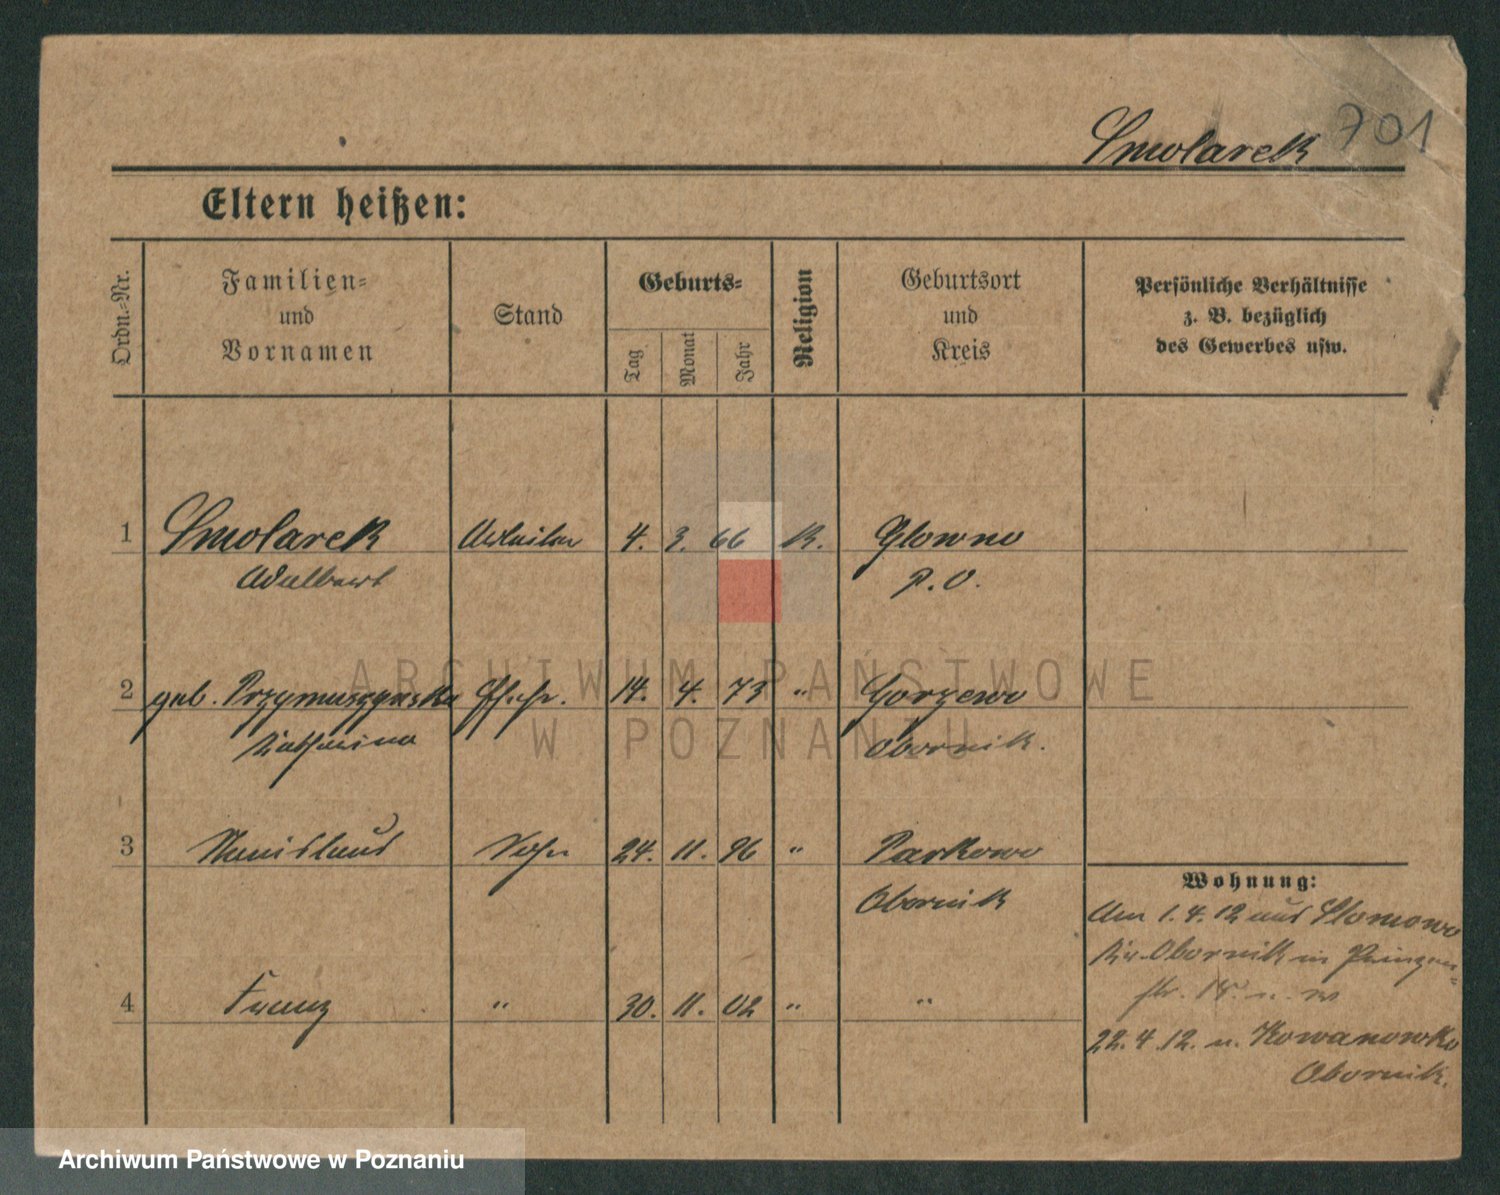 Smolarek 701
Eltern heißen:
Ordn.-Nr.
Familien-
und
Vornamen
Stand
Geburts-
Tag
Monat
Jahr
Religion
Geburtsort
und
Kreis
Persönliche Verhältnisse
z. B. bezüglich
des Gewerbes usw.
1 Smolarek Arbeiter 4. 3. 66 K. Glowno
Adalbert P. O.
2 geb. Przymuszynska Ehefr. 14. 4. 73 " Gorzewo
Katharina Obornik.
3 Stanislaus Sohn 24. 11. 96 " Parkowo
Obornik
4 Franz " 30. 11. 02 " "
Wohnung:
Am 1.4.12 aus Slomowo
Kr. Obornik in Prinzen-
str.
22.4.12. n. Kowanowko
Obornik.
ARCHIWUM PAŃSTWOWE
W POZNANIU
Archiwum Państwowe w Poznaniu